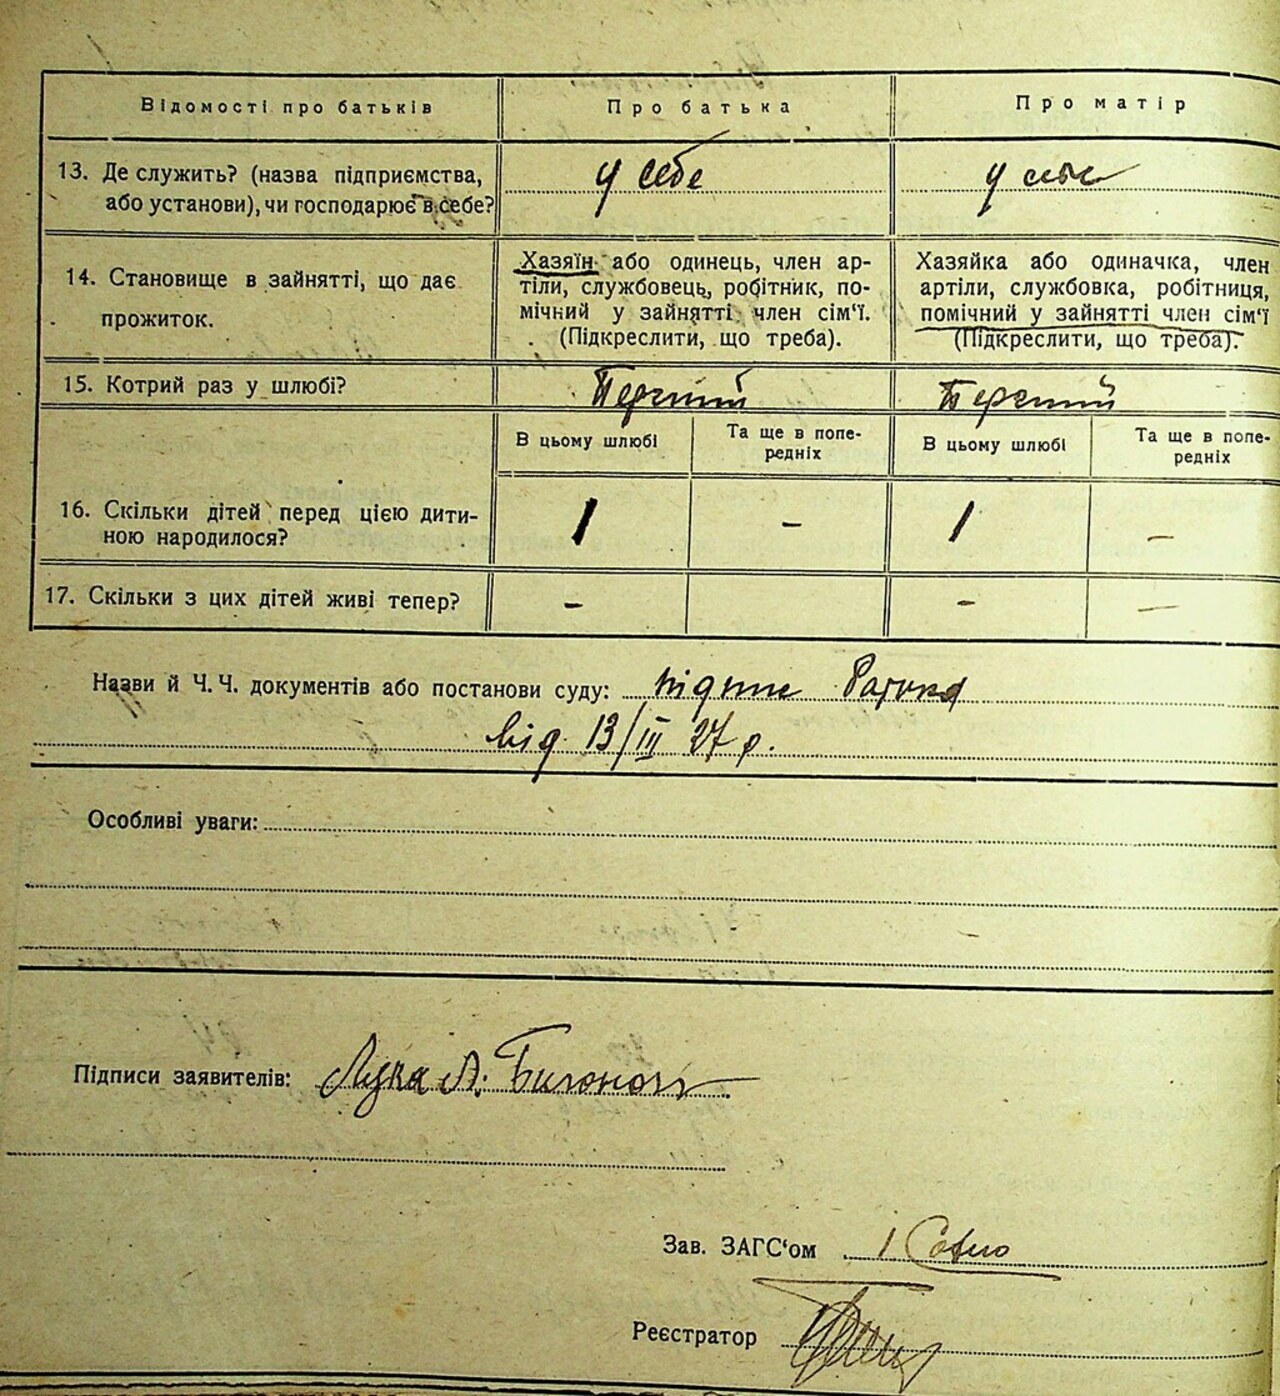 Відомості про батьків
Про батька
Про матір
13. Де служить? (назва підприємства,
або установи), чи господарює в себе?
у себе
у себе
14. Становище в зайнятті, що дає
прожиток.
Хазяїн або одинець, член ар-
тіли, службовець, робітник, по-
мічний у зайнятті член сім'ї.
(Підкреслити, що треба).
Хазяйка або одиначка, член
артіли, службовка, робітниця,
помічний у зайнятті член сім'ї
(Підкреслити, що треба).
15. Котрий раз у шлюбі?
Перший
Перший
В цьому шлюбі
Та ще в попе-
редніх
В цьому шлюбі
Та ще в попе-
редніх
16. Скільки дітей перед цією дити-
ною народилося?
1
-
1
-
17. Скільки з цих дітей живі тепер?
-
-
-
Назви й Ч. Ч. документів або постанови суду:
від 13/III 27 р.
Особливі уваги:
Підписи заявителів: Лука
Зав. ЗАГС'ом
Реєстратор